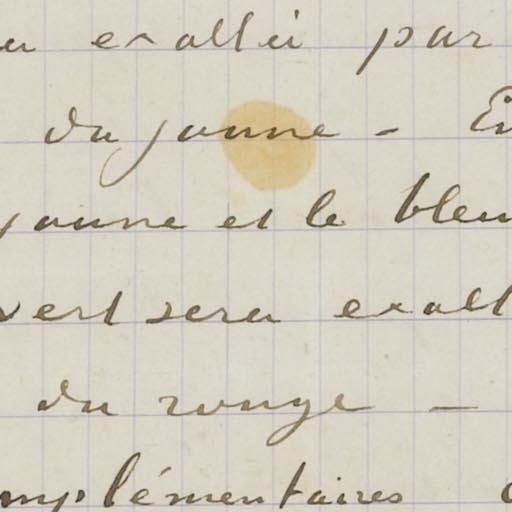 exalté par
du jaune -
jaune et le bleu
vert sera exalt
du rouge —
mplémentaires